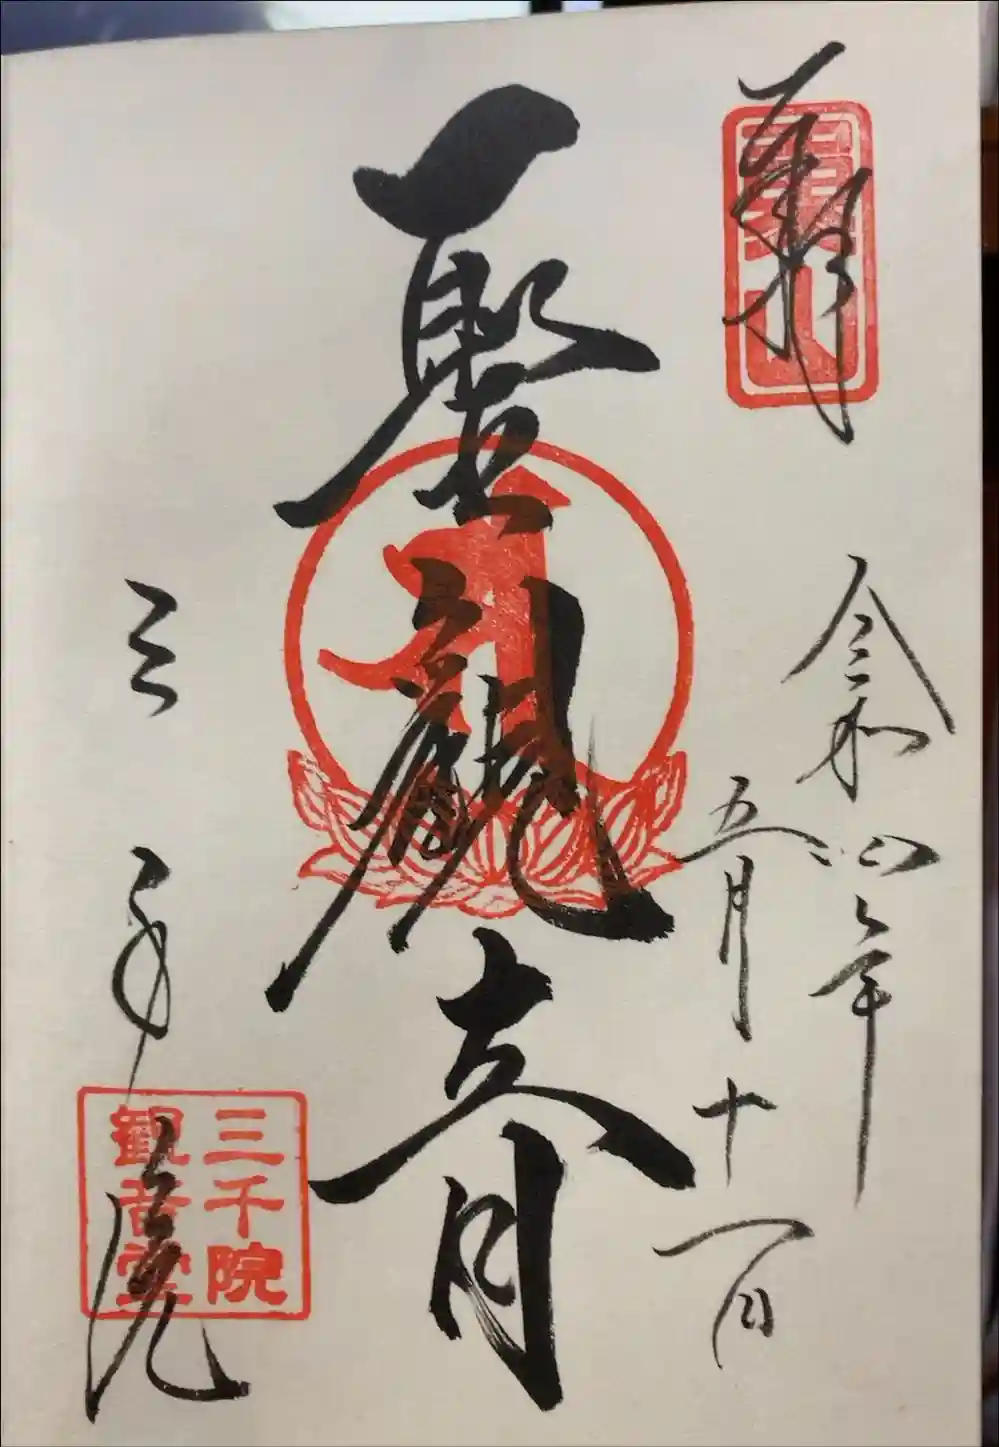 奉拝
令和四年
五月十一日
聖観音
三千院
三千院
観音堂